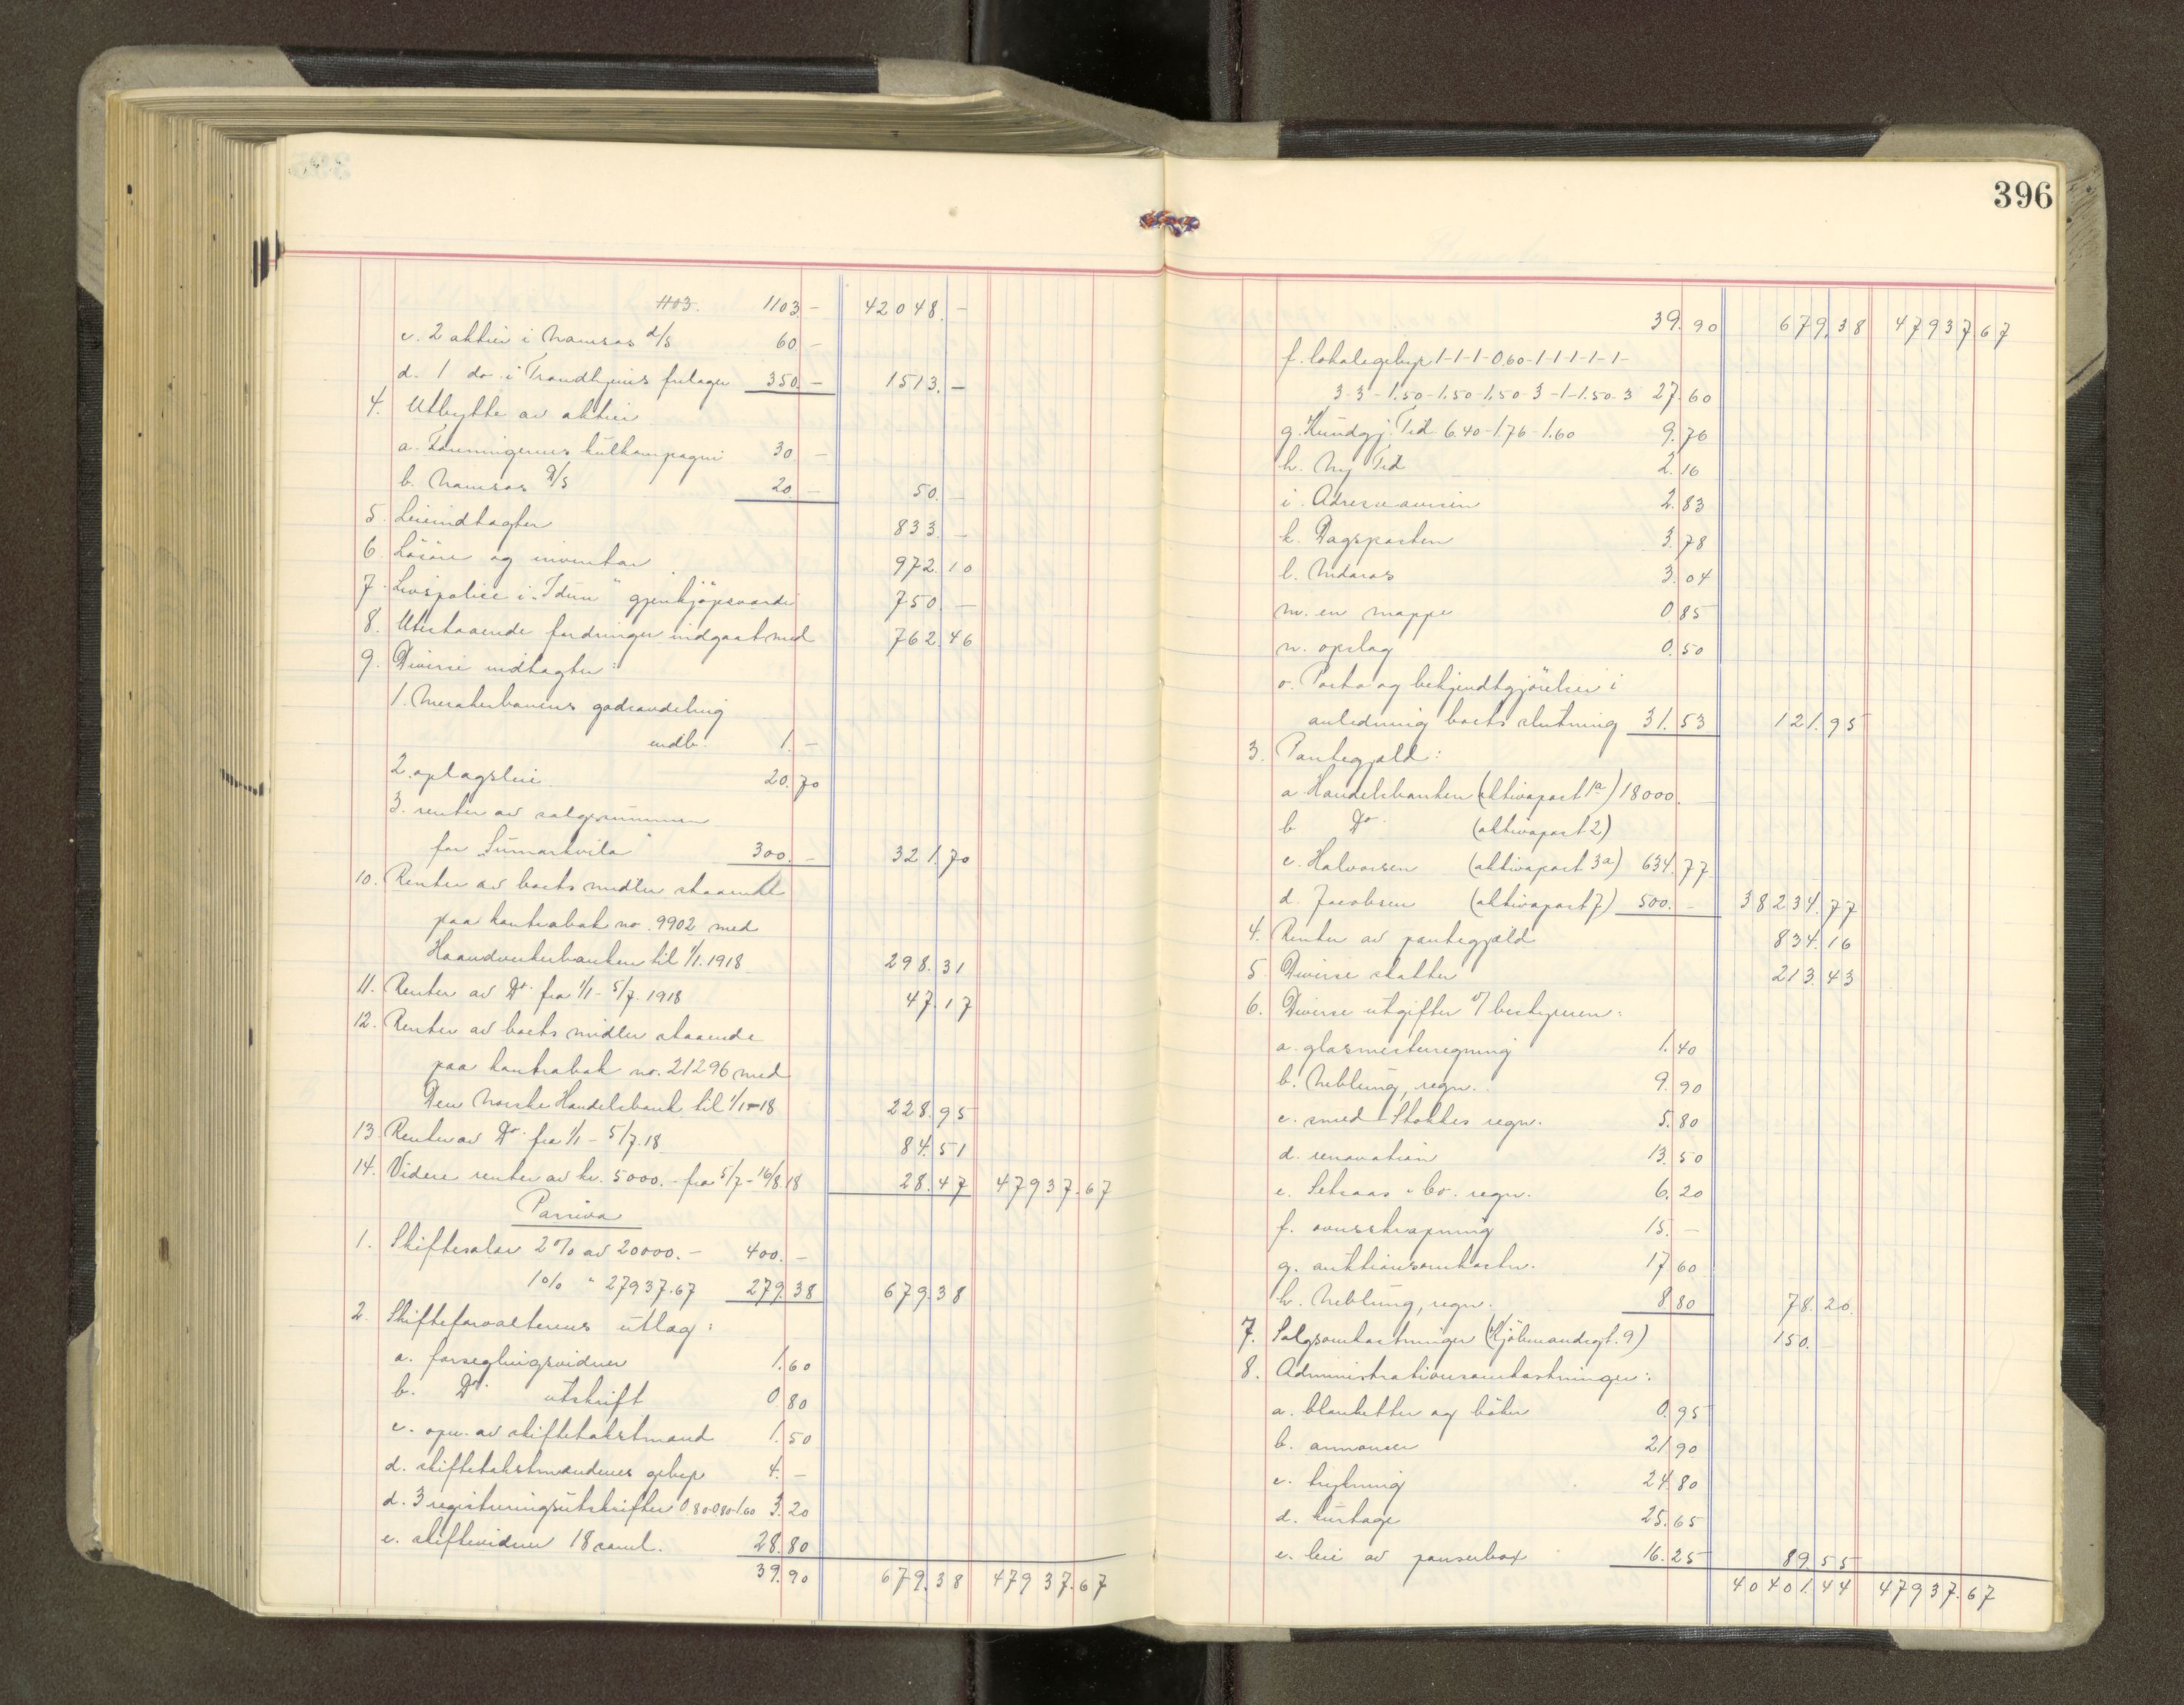 1103. 1103.– 42048.–
c. 2 aktier i Namsos d/s 60.–
d. 1 do. i Trondhjems frelager 350.– 1513.–
4. Utbytte av aktier
a. Foreningernes kulkompagni 30.–
b. Namsos d/s 20.– 50.–
5. Leieindtægter 833.–
6. Løsøre og inventar 972.10
7. Livspolice i „Idun" gjenkjøpsværdi 750.–
8. Utestaaende fordringer indgaat med 762.46
9. Diverse indtægter:
1. Merakerbanens godsavdeling
indb. 1.–
2. oplagsleie 20.70
3. renter av salgssummen
for „Sunnarkvila" 300.– 321.70
10. Renter av boets midler staaende
paa kontrabok no. 9902 med
Haandverkerbanken til 1/1.1918 298.31
11. Renter av Do. fra 1/1 – 5/7.1918 47.17
12. Renter av boets midler staaende
paa kontrabok no. 21296 med
Den Norske Handelsbank til 1/1–18 228.95
13. Renter av Do. fra 1/1 – 5/7.18 84.51
14. Videre renter av kr. 5000.– fra 5/7 – 16/8.18 28.47 47937.67
Passiva
1. Skiftesalær 2% av 20000.– 400.–
1% " 27937.67 279.38 679.38
2. Skifteforvalterens utlæg:
a. forseglingsvidner 1.60
b. Do. utskrift 0.80
c. opn. av skiftetakstmænd 1.50
d. skiftetakstmændenes gebyr 4.–
d. 3 registreringsutskrifter 0.80-0.80-1.60 3.20
e. skiftevidner 18 saml. 28.80
39.90 679.38 47937.67
396
39.90 679.38 47937.67
f. lokalegebyr 1-1-1-0.60-1-1-1-1-1-
3-3-1.50-1.50-1.50-3-1-1.50-3 27.60
g. Kundgj. Tid. 6.40-1.76-1.60 9.76
h. Ny Tid 2.16
i. Adresseavisen 2.83
k. Dagsposten 3.78
l. Nidaros 3.04
m. en mappe 0.85
n. opslag 0.50
o. Porto og bekjendtgjørelser i
anledning boets slutning 31.53 121.95
3. Pantegjæld:
a. Handelsbanken (aktivapost 1a) 18000.–
b. Do. (aktivapost 2)
c. Halvorsen (aktivapost 3a) 634.77
d. Jacobsen (aktivapost 7) 500.– 38234.77
4. Renter av pantegjæld 834.16
5. Diverse skatter 213.43
6. Diverse utgifter v/ bestyreren:
a. glasmesterregning 1.40
b. Neblung, regn. 9.90
c. smed Stokkes regn. 5.80
d. renovation 13.50
e. Setsaas & Co. regn. 6.20
f. ovnsskrapning 15.–
g. auktionsomkostn. 17.60
h. Neblung, regn. 8.80 78.20
7. Salgsomkostninger (Kjøbmandsgt. 9) 150.
8. Administrationsomkostninger:
a. blanketter og bøker 0.95
b. annoncer 21.90
c. trykning 24.80
d. kurtage 25.65
e. leie av panserbox 16.25 89.55
40401.44 47937.67